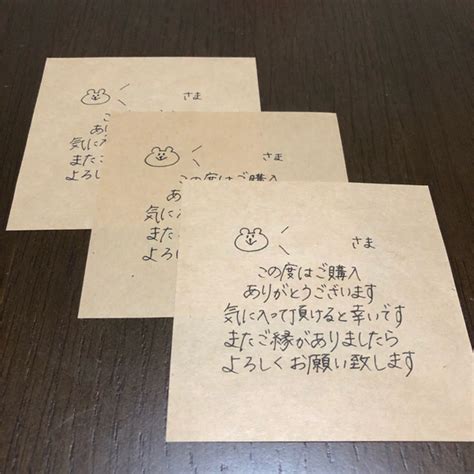 さま
こ
あり
気に入
また
よろし
さま
この度はご購入
あ
気に入
また
よろ
さま
この度はご購入
ありがとうございます
気に入って頂けると幸いです
またご縁がありましたら
よろしくお願い致します